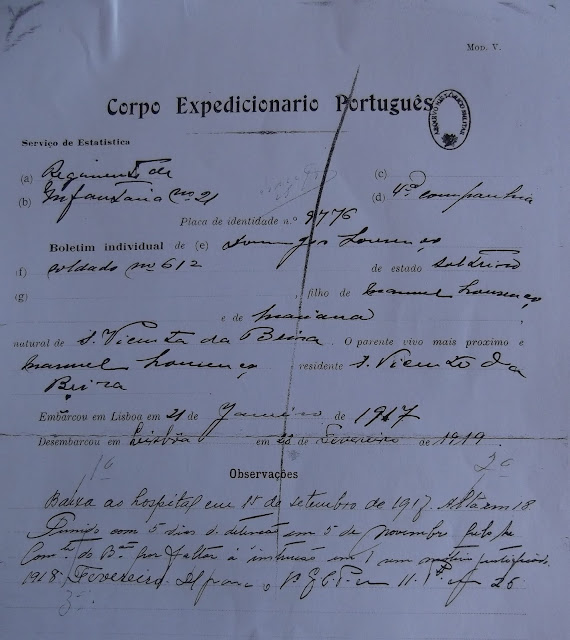 Mod. V.
Corpo Expedicionario Português
ARCHIVO HISTORICO MILITAR
Serviço de Estatistica
(a) Regimento de (c)
(b) Infantaria nº 21 (d) 4ª companhia
Placa de identidade n.º 9776
Boletim individual de (e) Domingos Lourenço
f) soldado nº 612 de estado solteiro
(g) , filho de Manuel Lourenço
e de Mariana ,
natural de S. Vicente da Beira. O parente vivo mais proximo é
Manuel Lourenço residente S. Vicente da
Beira
Embarcou em Lisboa em 21 de Janeiro de 1917
Desembarcou em Lisboa em de Fevereiro de 1919.
1º 2º
Observações
Baixa ao hospital em 1 de setembro de 1917. Alta em 18
Punido com 5 dias d. detensão em 5 de novembro pelo
Comte do B. por faltar á instrução em 1 sem
1918 Fevereiro 11. 26
3º